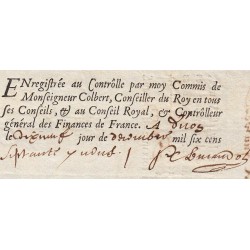 ENregistrée au Contrôlle par moy Commis de
Monseigneur Colbert, Conseiller du Roy en tous
ses Conseils, & au Conseil Royal, & Controlleur
général des Finances de France. A
le dixneuf jour de decembre mil six cens
soixante